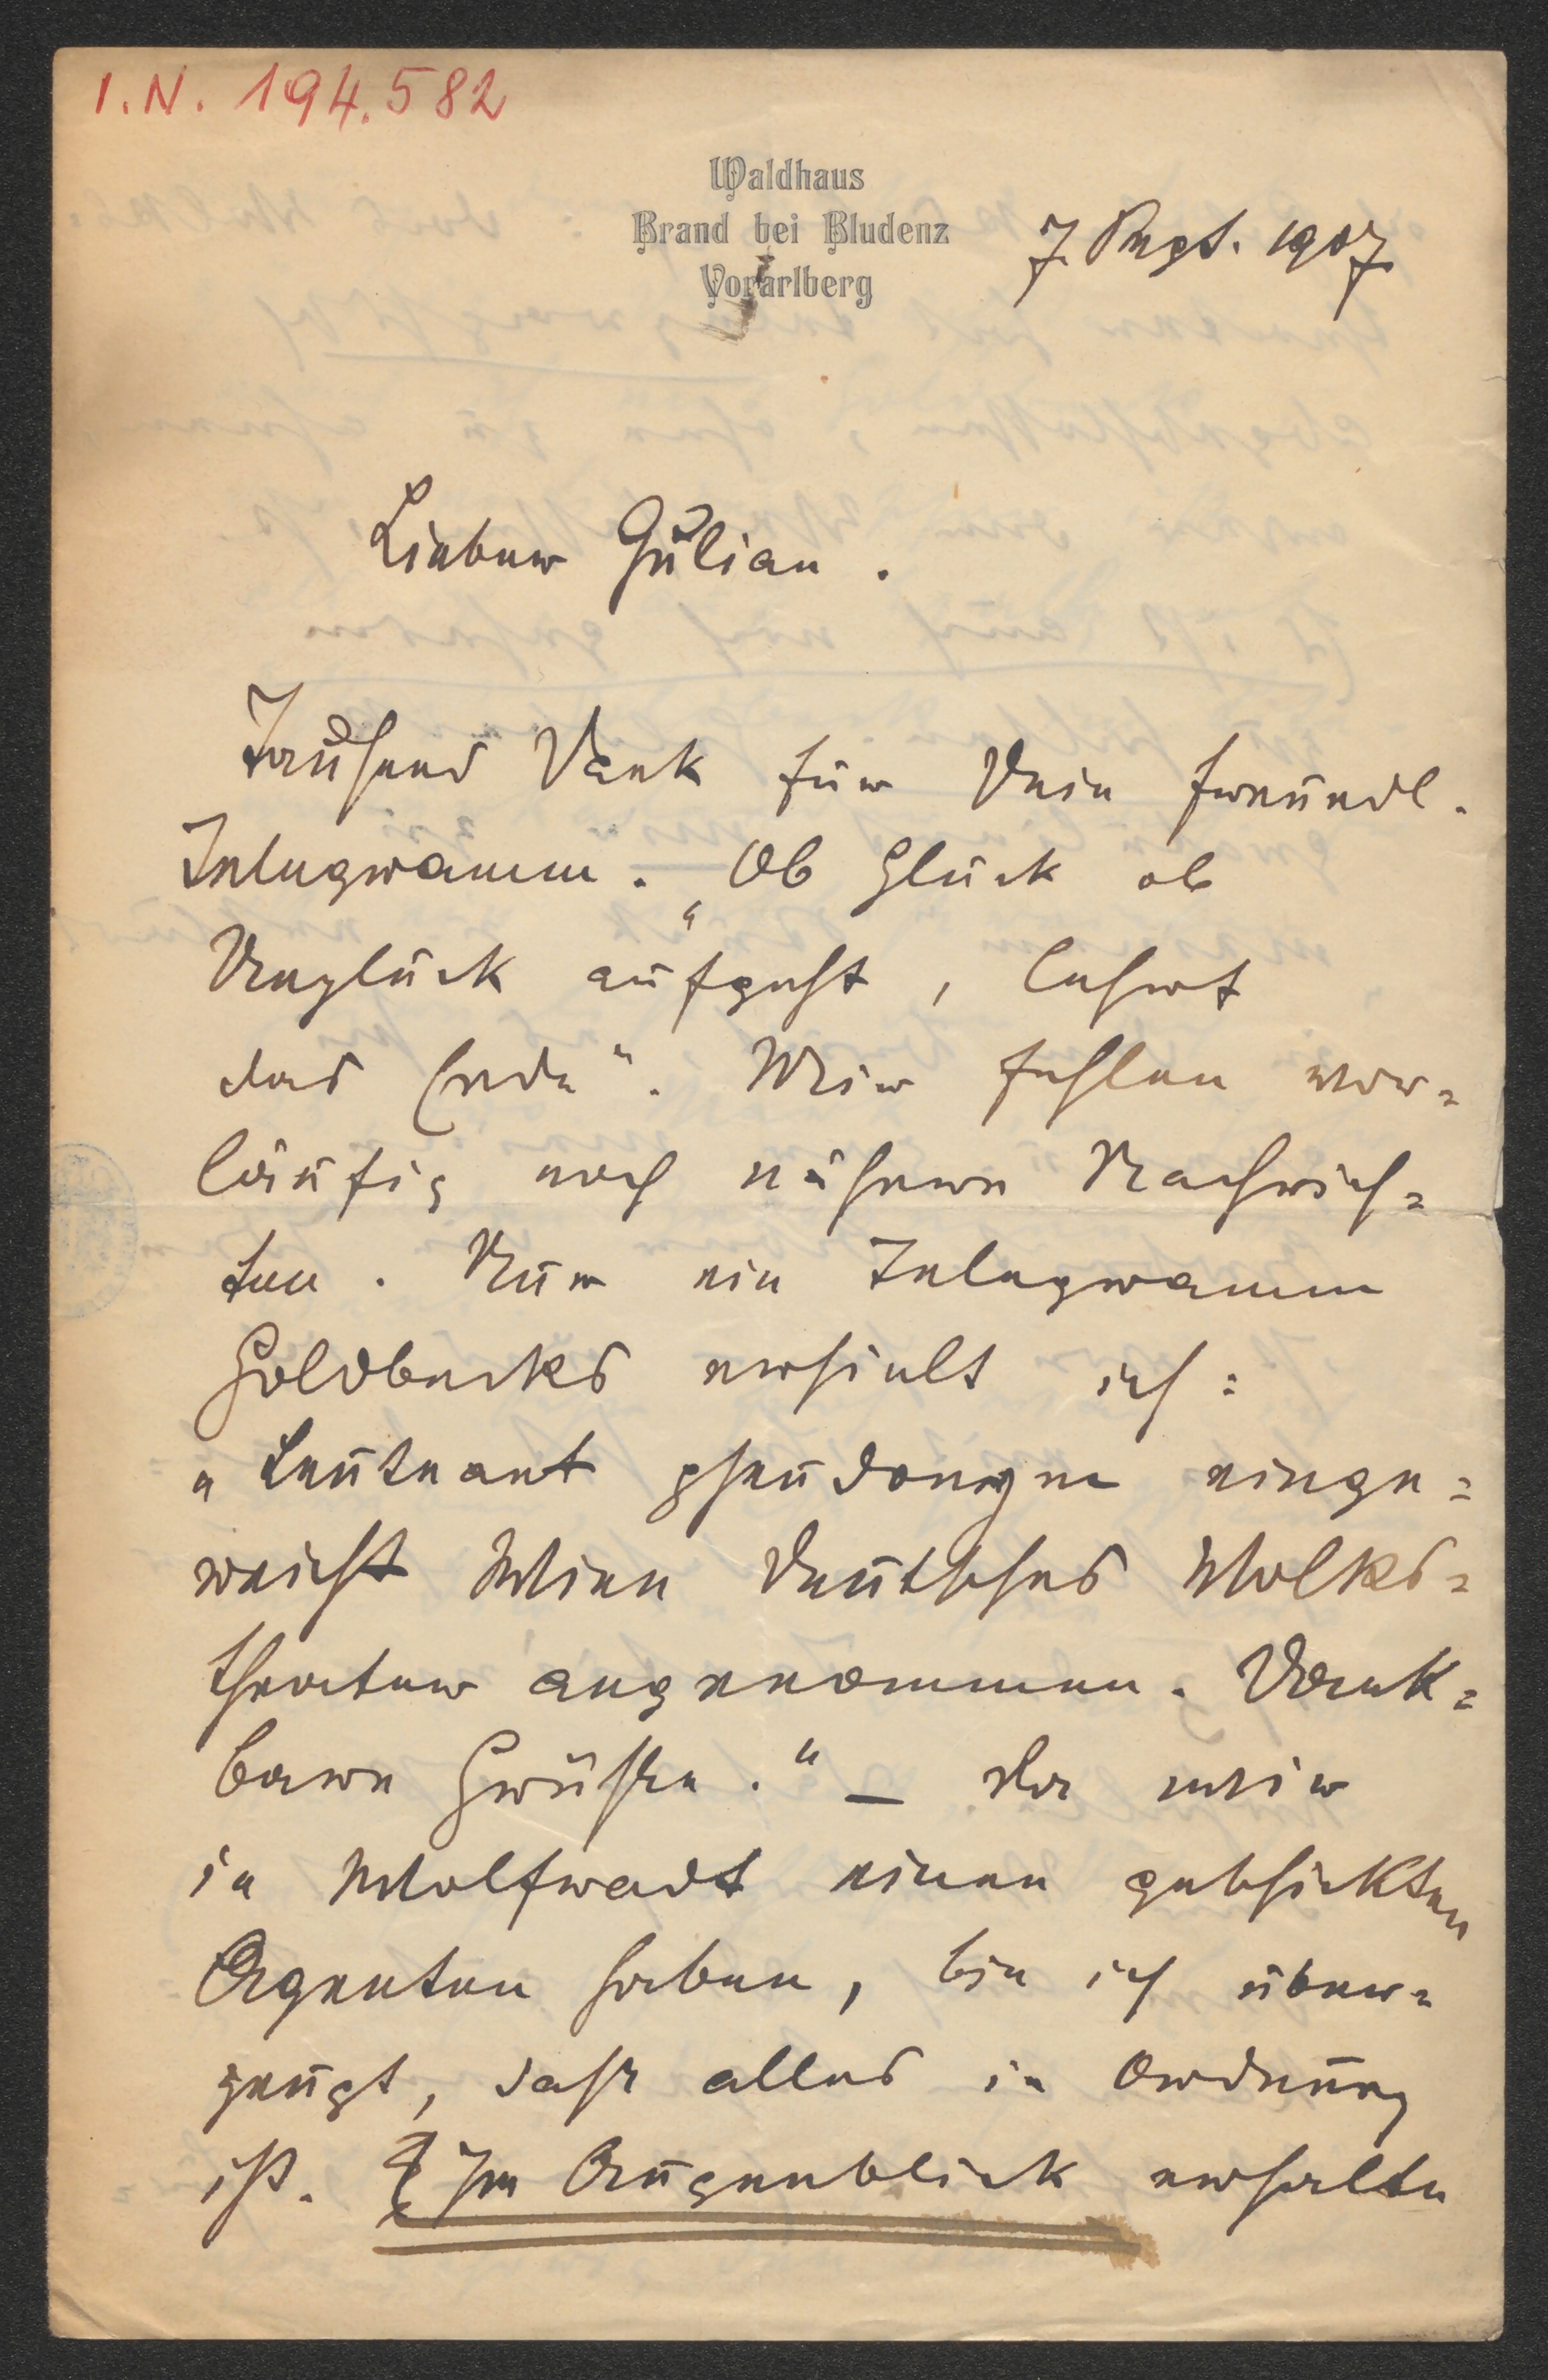 I.N. 194.582
Waldhaus
Brand bei Bludenz
Vorarlberg
7. Augst. 1907
Lieber Julian.
Tausend Dank für Dein freundl.
Telegramm. „Ob Glück ob
Unglück aufgeht, lehrt
das Ende“. Mir fehlen vor=
läufig noch nähere Nachrich=
ten. Nur ein Telegramm
Goldbecks erhielt ich:
„Leutnant pseudonym einge=
reicht Wien Deutsches Volks=
theater angenommen. Dank=
bare Grüße.“ – Da wir
in Wolfradt einen geschickten
Agenten haben, bin ich über=
zeugt, daß alles in Ordnung
ist. Im Augenblick erhalte